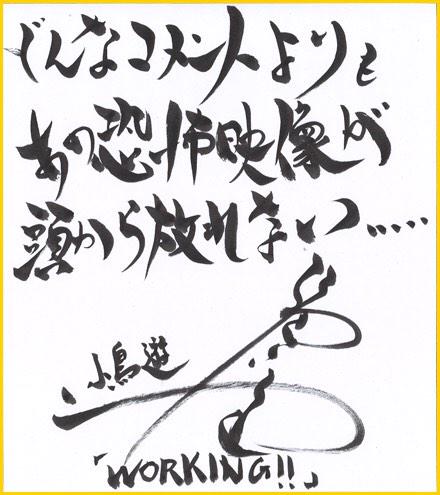 どんなコメントよりも
あの恐怖映像が
頭から放れない……
小鳥遊
「WORKING!!」